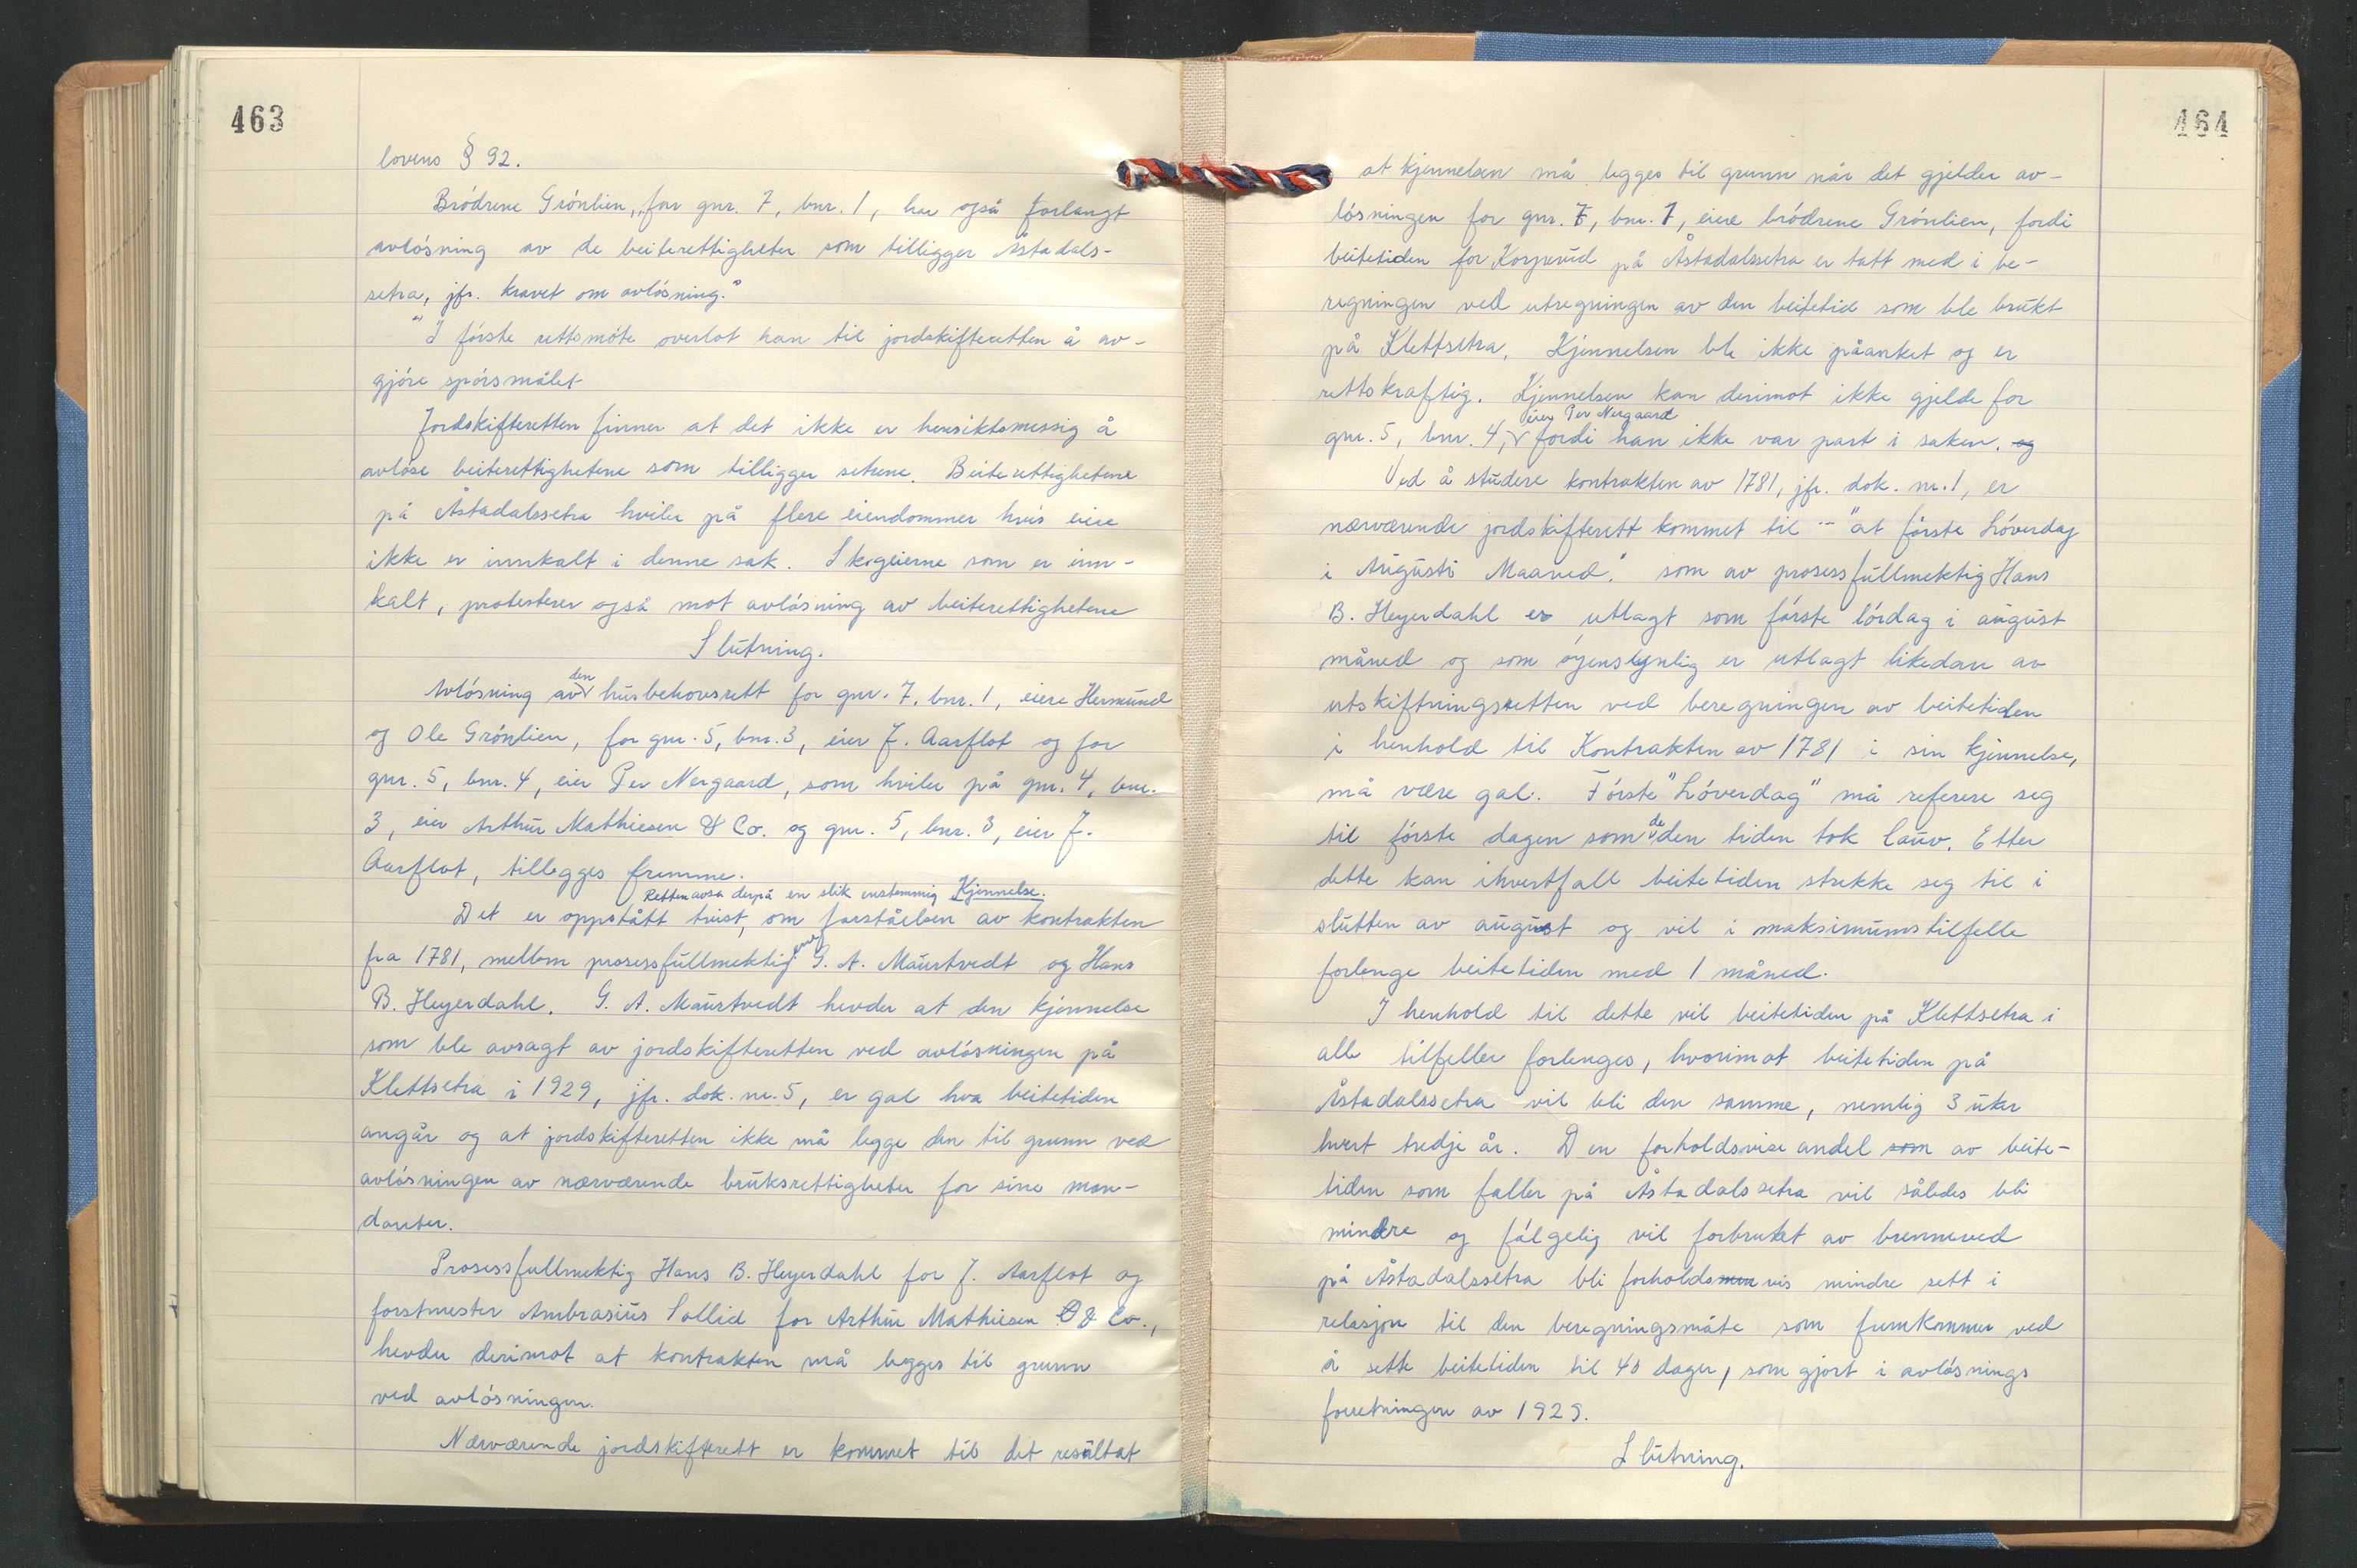 463
lovens § 92.
Brødrene Grønlien, for gnr. 7, bnr. 1, har også forlangt
avløsning av de beiterettigheter som tilligger Åstadals-
setra, jfr. kravet om avløsning."
"I første rettsmøte overlot han til jordskifteretten å av-
gjøre spørsmålet
Jordskifteretten finner at det ikke er hensiktsmessig å
avløse beiterettighetene som tilligger setrene. Beiterettighetene
på Åstadalssetra hviler på flere eiendommer hvis eiere
ikke er innkalt i denne sak. Skogeierne som er inn-
kalt, protesterer også mot avløsning av beiterettighetene
Slutning.
Avløsning av den husbehovsrett for gnr. 7, bnr. 1, eiere Hermund
og Ole Grønlien, for gnr. 5, bnr. 3, eier J. Aarflot og for
gnr. 5, bnr. 4, eier Per Nergaard, som hviler på gnr. 4, bnr.
3, eier Arthur Mathiesen & Co. og gnr. 5, bnr. 3, eier J.
Aarflot, tillegges fremme.
Retten avsa derpå en slik enstemmig Kjennelse.
Det er oppstått tvist, om forståelsen av kontrakten
fra 1781, mellem prosessfullmektig G. A. Maurtvedt og Hans
B. Heyerdahl. G. A. Maurtvedt hevder at den kjennelse
som ble avsagt av jordskifteretten ved avløsningen på
Klettsetra i 1929, jfr. dok. nr. 5, er gal hva beitetiden
angår og at jordskifteretten ikke må legge den til grunn ved
avløsningen av nærværende bruksrettigheter for sine man-
danter.
Prosessfullmektig Hans B. Heyerdahl for J. Aarflot og
forstmester Ambrasius Sollid for Arthur Mathiesen & Co.,
hevder derimot at kontrakten må legges til grunn
ved avløsningen.
Nærværende jordskifterett er kommet til det resultat
464
at kjennelsen må legges til grunn når det gjelder av-
løsningen for gnr. 7, bnr. 1, eiere brødrene Grønlien, fordi
beitetiden for Korpreud på Åstadalssetra er tatt med i be-
regningen ved utregningen av den beitetid som ble brukt
på Klettsetra. Kjennelsen ble ikke påanket og er
rettskraftig. Kjennelsen kan derimot ikke gjelde for
eier Per Nergaard
gnr. 5, bnr. 4, fordi han ikke var part i saken. og
Ved å studere kontrakten av 1781, jfr. dok. nr. 1, er
nærværende jordskifterett kommet til -- "at første Løverdag
i Augusti Maaned." som av prosessfullmektig Hans
B. Heyerdahl er utlagt som første lørdag i august
måned og som øyenslynlig er utlagt likedan av
utskiftningsretten ved beregningen av beitetiden
i henhold til Kontrakten av 1781 i sin kjennelse,
må være gal. Første "Løverdag" må referere seg
til første dagen som de den tiden tok lauv. Etter
dette kan ihvertfall beitetiden strekke seg til i
slutten av august og vil i maksimumstilfelle
forlenge beitetiden med 1 måned.
I henhold til dette vil beitetiden på Klettsetra i
alle tilfeller forlenges, hvorimot beitetiden på
Åstadalssetra vil bli den samme, nemlig 3 uker
hvert tredje år. Den forholdsvise andel som av beite-
tiden som faller på Åstadalssetra vil således bli
mindre og følgelig vil forbruket av brenneved
på Åstadalssetra bli forholdsvis mindre sett i
relasjon til den beregningsmåte som fremkommer ved
å sette beitetiden til 40 dager, som gjort i avløsnings
forretningen av 1929.
Slutning.